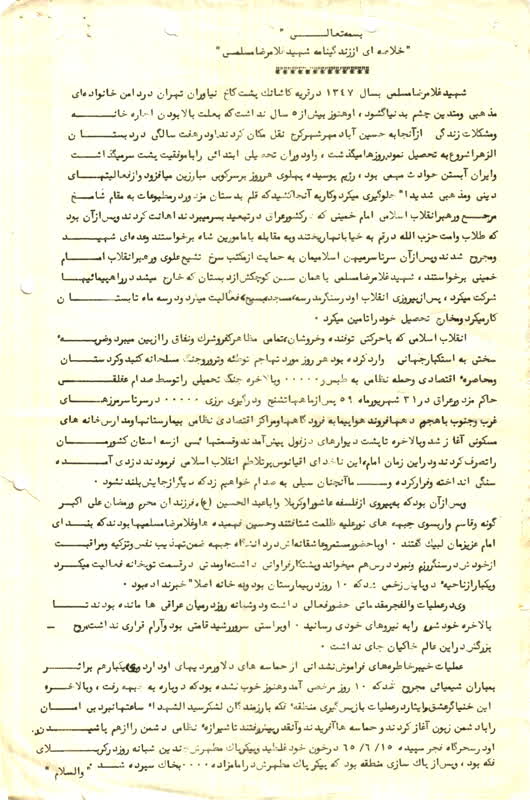 بسمه تعالــــی "
"خلاصه ای از زندگینامه شهید غلامرضا مسلمی"
شهید غلامرضا مسلمی بسال ۱۳۴۷ در قریه کاشانک پشت کاخ نیاوران تهران در دامن خانواده ای
مذهبی ومتدین چشم بدنیا گشود، او هنوز بیش از ۵ سال نداشت که بعلت بالا بودن اجاره خانـــه
ومشکلات زندگی از آنجا به حسین آباد مهرشهر کرج نقل مکان کردند او در هفت سالگی در دبستــان
الزهرا شروع به تحصیل نمود روزها میگذشت، واو دوران تحصیلی ابتدائی را با موفقیت پشت سر میگذاشت
وایران آبستن حوادث مهمی بود، رژیم پوسیده پهلوی هر روز بر سرکوبی مبارزین میافزود واز فعالیتهای
دینی ومذهبی شدیدا" جلوگیری میکرد وکار به آنجا کشید که قلم بدستان مزدور در مطبوعات به مقام شامـخ
مرجـــع ورهبر انقلاب اسلامی امام خمینی که در کشور عراق در تبعید بسر میبردند اهانت کردند وپس از آن بود
که طلاب وامت حزب الله در قم به خیابانها ریختند وبه مقابله با مامورین شاه برخواستند وعده ای شهیــد
ومجروح شدند وپس از آن سرتاسر میهن اسلامیمان به حمایت از مکتب سرخ تشیع علوی ورهبر انقلاب امــام
خمینی برخواستند، شهید غلامرضا مسلمی با همان سن کوچکش از دبستان که خارج میشد در راهپیمائیها
شرکت میکرد، پس از پیروزی انقلاب او در سنگر مدرسه، مسجد، بسیج فعالیت میکرد ودر سه ماه تابستــان
کار میکرد ومخارج تحصیل خود را تامین میکرد.
انقلاب اسلامی که با حرکتی توفنده وخروشان، تمامی مظاهر کفر وشرک ونفاق را از بین میبرد وضربــه
سختی به استکبار جهانی وارد کرده بود هر روز مورد تهاجم توطئه وترور وجنگ مسلحانه کنید وکردستان
ومحاصره اقتصادی وحمله نظامی به طبس و ۰۰۰۰۰ وبالاخره جنگ تحمیلی را توسط صدام عفلقــی
حاکم مزدور عراق در ۳۱ شهریور ماه ۵۹ پس از ماهها تشنج ودرگیری مرزی ۰۰۰۰۰ در سرتاسر مرزهای
غرب وجنوب با هجوم دهها فروند هواپیما به فرودگاهها ومراکز اقتصادی نظامی بیمارستانها ومدارس خانه های
مسکونی آغاز شد وبالاخره تا پشت دیوارهای دزفول پیش آمدند وقسمتهائی از سه استان کشورمــان
را تصرف کردند ودر این زمان امام، این ناخدای اقیانوس پر تلاطم انقلاب اسلامی فرمودند دزدی آمــده
سنگی انداخته وفرار کرده و ما آنچنان سیلی به صدام خواهیم زد که دیگر از جایش بلند نشود.
وپس از آن بود که به پیروی از فلسفه عاشورا وکربلا وابا عبد الحسین (ع)، فرزندان محرم ورمضان علی اکبر
گونه وقاسم وار بسوی جبهه های نور علیه ظلمت شتافتند وحسین فهمیده ها وغلامرضا مسلمیها بودند که بندای
امام عزیزمان لبیک گفتند. او با حضور مستمر وعاشقانه اش در دانشگاه جبهه ضمن تهذیب نفس وتزکیه ومراقبت
از خودش در سنگر رزم ونبرد درس هم میخواند وپشتکار فراوانی داشت او مدتی در قسمت توپخانه فعالیت میکــرد
ویکبار از ناحیه دو پایش زخمی شد که ۱۰ روز در بیمارستان بود وبه خانه اصلا" خبر نداده بود.
وی در عملیات والفجر مقدماتی حضور فعالی داشت ودو شبانه روز در میان عراقی ها مانده بود تــا
بالاخره خودش را به نیروهای خودی رسانید. او براستی سرو رشید قامتی بود وآرام قراری نداشت، روح
بزرگش در این عالم خاکیان جای نداشت.
عملیات خیبر خاطره های فراموش نشدنی از حماسه های دلاور مردیهای او دارد، یکبار هم بر اثــر
بمباران شیمیائی مجروح شد که ۱۰ روز مرخصی آمد وهنوز خوب نشده بود که دوباره به جبهه رفت، وبالاخــره
این خنیاگر عشق وایثار در عملیات باز پس گیری منطقه فکه با رزمندگان لشکر سید الشهداء ساعتها نبرد بی امــان
را با دشمن زبون آغاز کردند وحماسه ها آفریدند وآنقدر پیش رفتند تا شیرازه نظامی دشمن را از هم پاشیدنــد.
او در سحرگاه فجر سپیده ۶۵/۶/۱۵ در خون خود غلطید وپیکر پاک مطهرش چندین شبانه روز در کربــلای
فکه بود، وپس از پاک سازی منطقه بود که پیکر پاک مطهرش در امامزاده ۰۰۰۰ بخاک سپرده شــد "
والسلام "